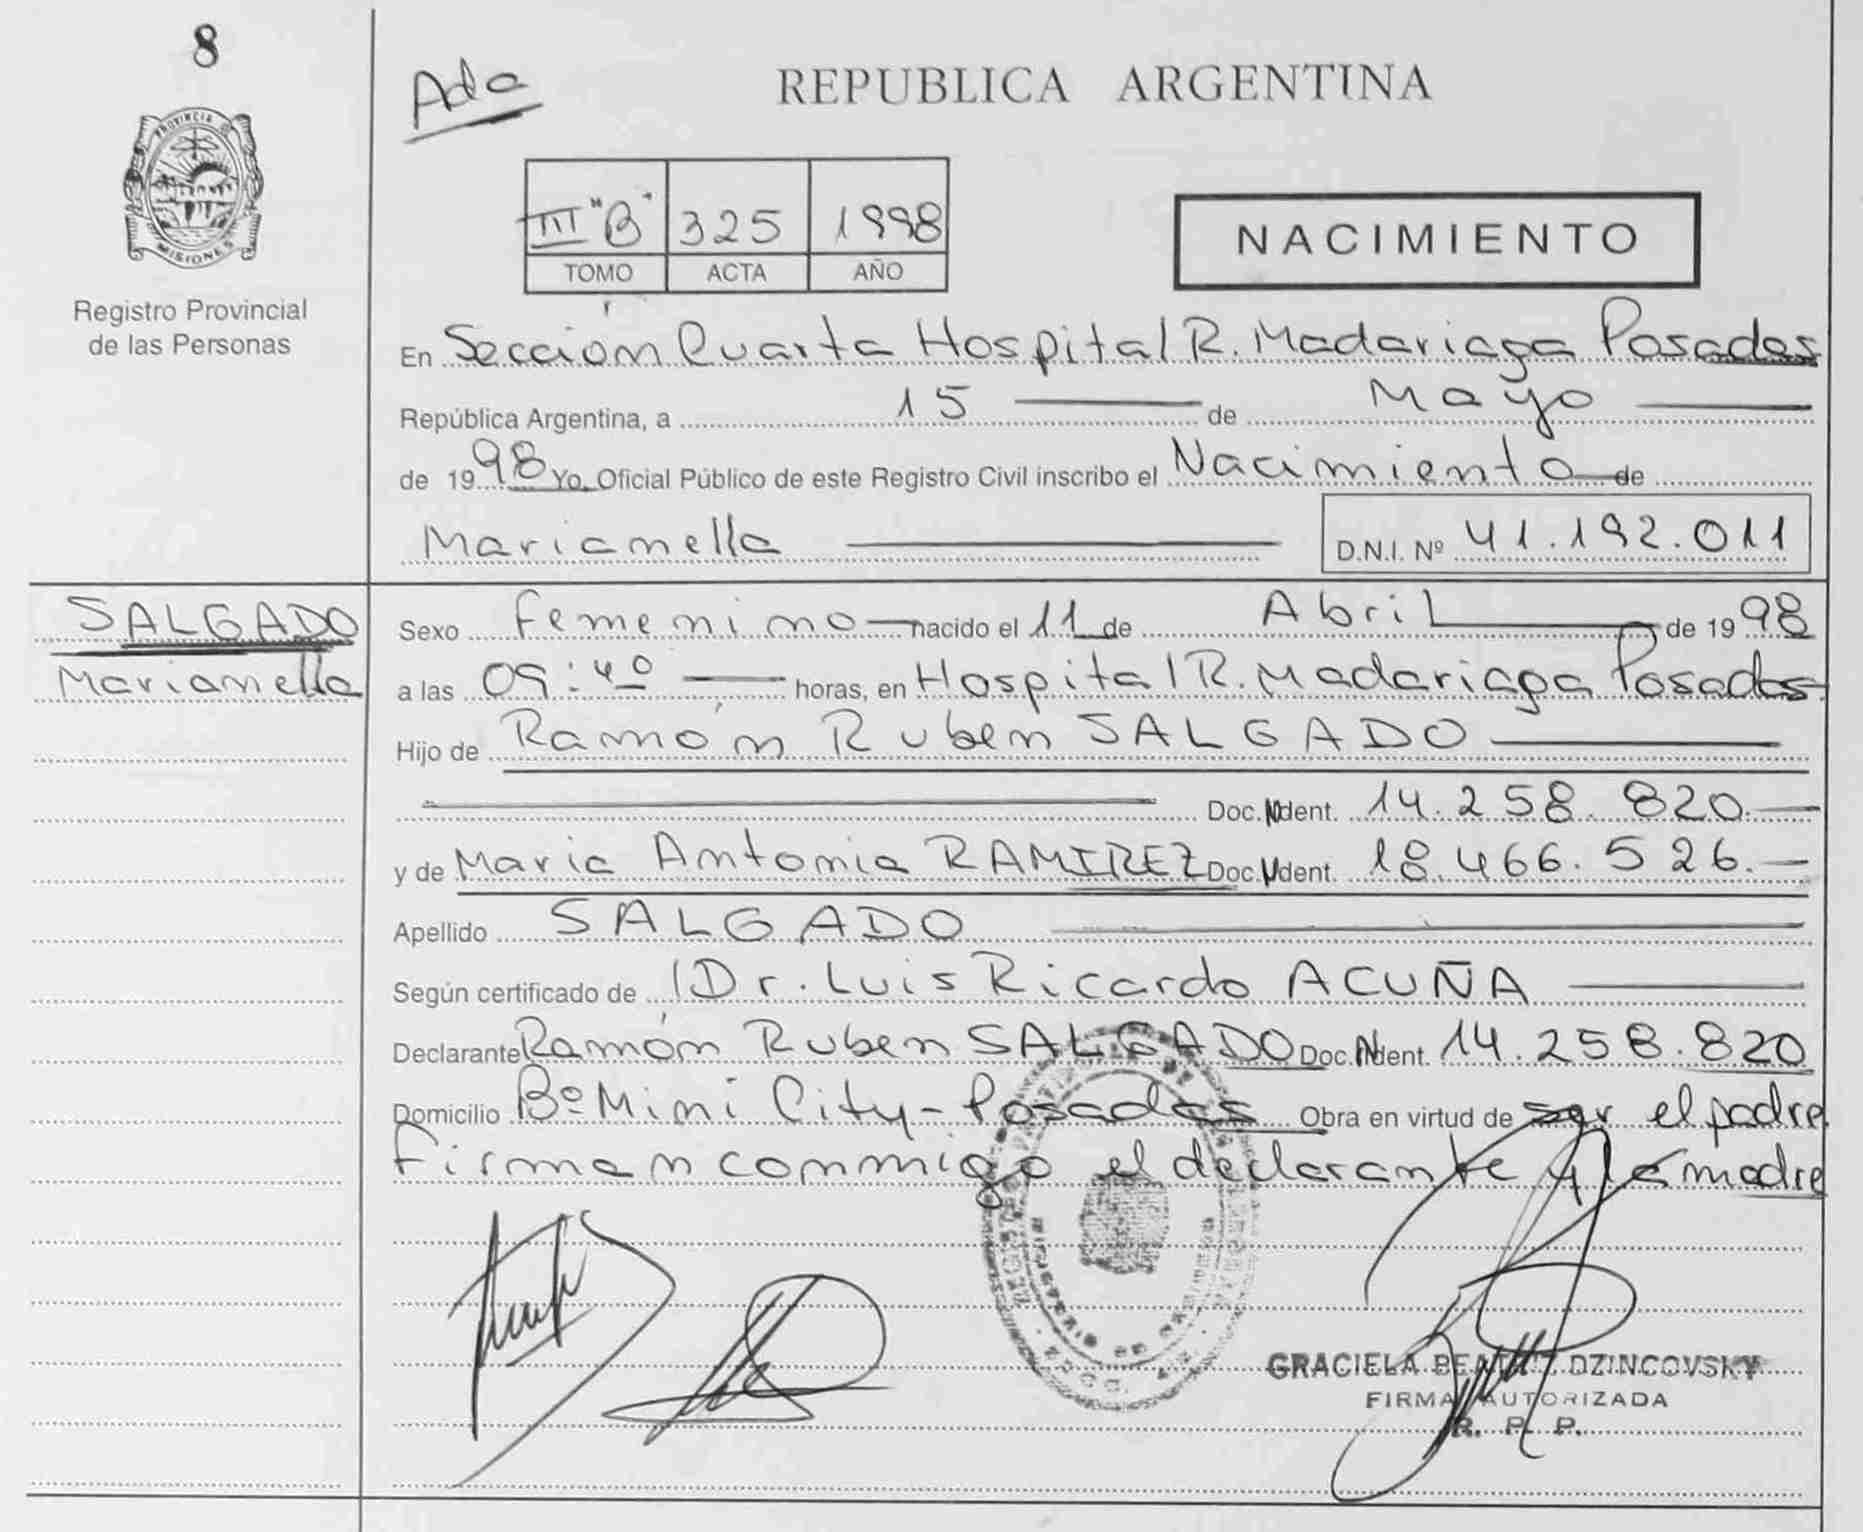 8
Ada
REPUBLICA ARGENTINA
PROVINCIA DE
MISIONES
Registro Provincial
de las Personas
III "B" 325 1998
TOMO ACTA AÑO
NACIMIENTO
En Sección Cuarta Hospital R. Madariaga Posadas
República Argentina, a 15 de Mayo
de 1998 Yo, Oficial Público de este Registro Civil inscribo el Nacimiento de
Marianella D.N.I. Nº 41.192.011
SALGADO
Marianella
Sexo Femenino nacido el 11 de Abril de 1998
a las 09:40 horas, en Hospital R. Madariaga Posadas
Hijo de Ramón Ruben SALGADO
Doc. Ident. 14.258.820
y de Maria Antonia RAMIREZ Doc. Ident. 18.466.526.
Apellido SALGADO
Según certificado de Dr. Luis Ricardo ACUÑA
Declarante Ramón Ruben SALGADO Doc. Ident. 14.258.820
Domicilio Bº Mini City - Posadas Obra en virtud de ser el padre
Firman conmigo el declarante y la madre
MINISTERIO DE GOBIERNO
GRACIELA BEATRIZ DZINCOVSKY
FIRMA AUTORIZADA
R. P. P.